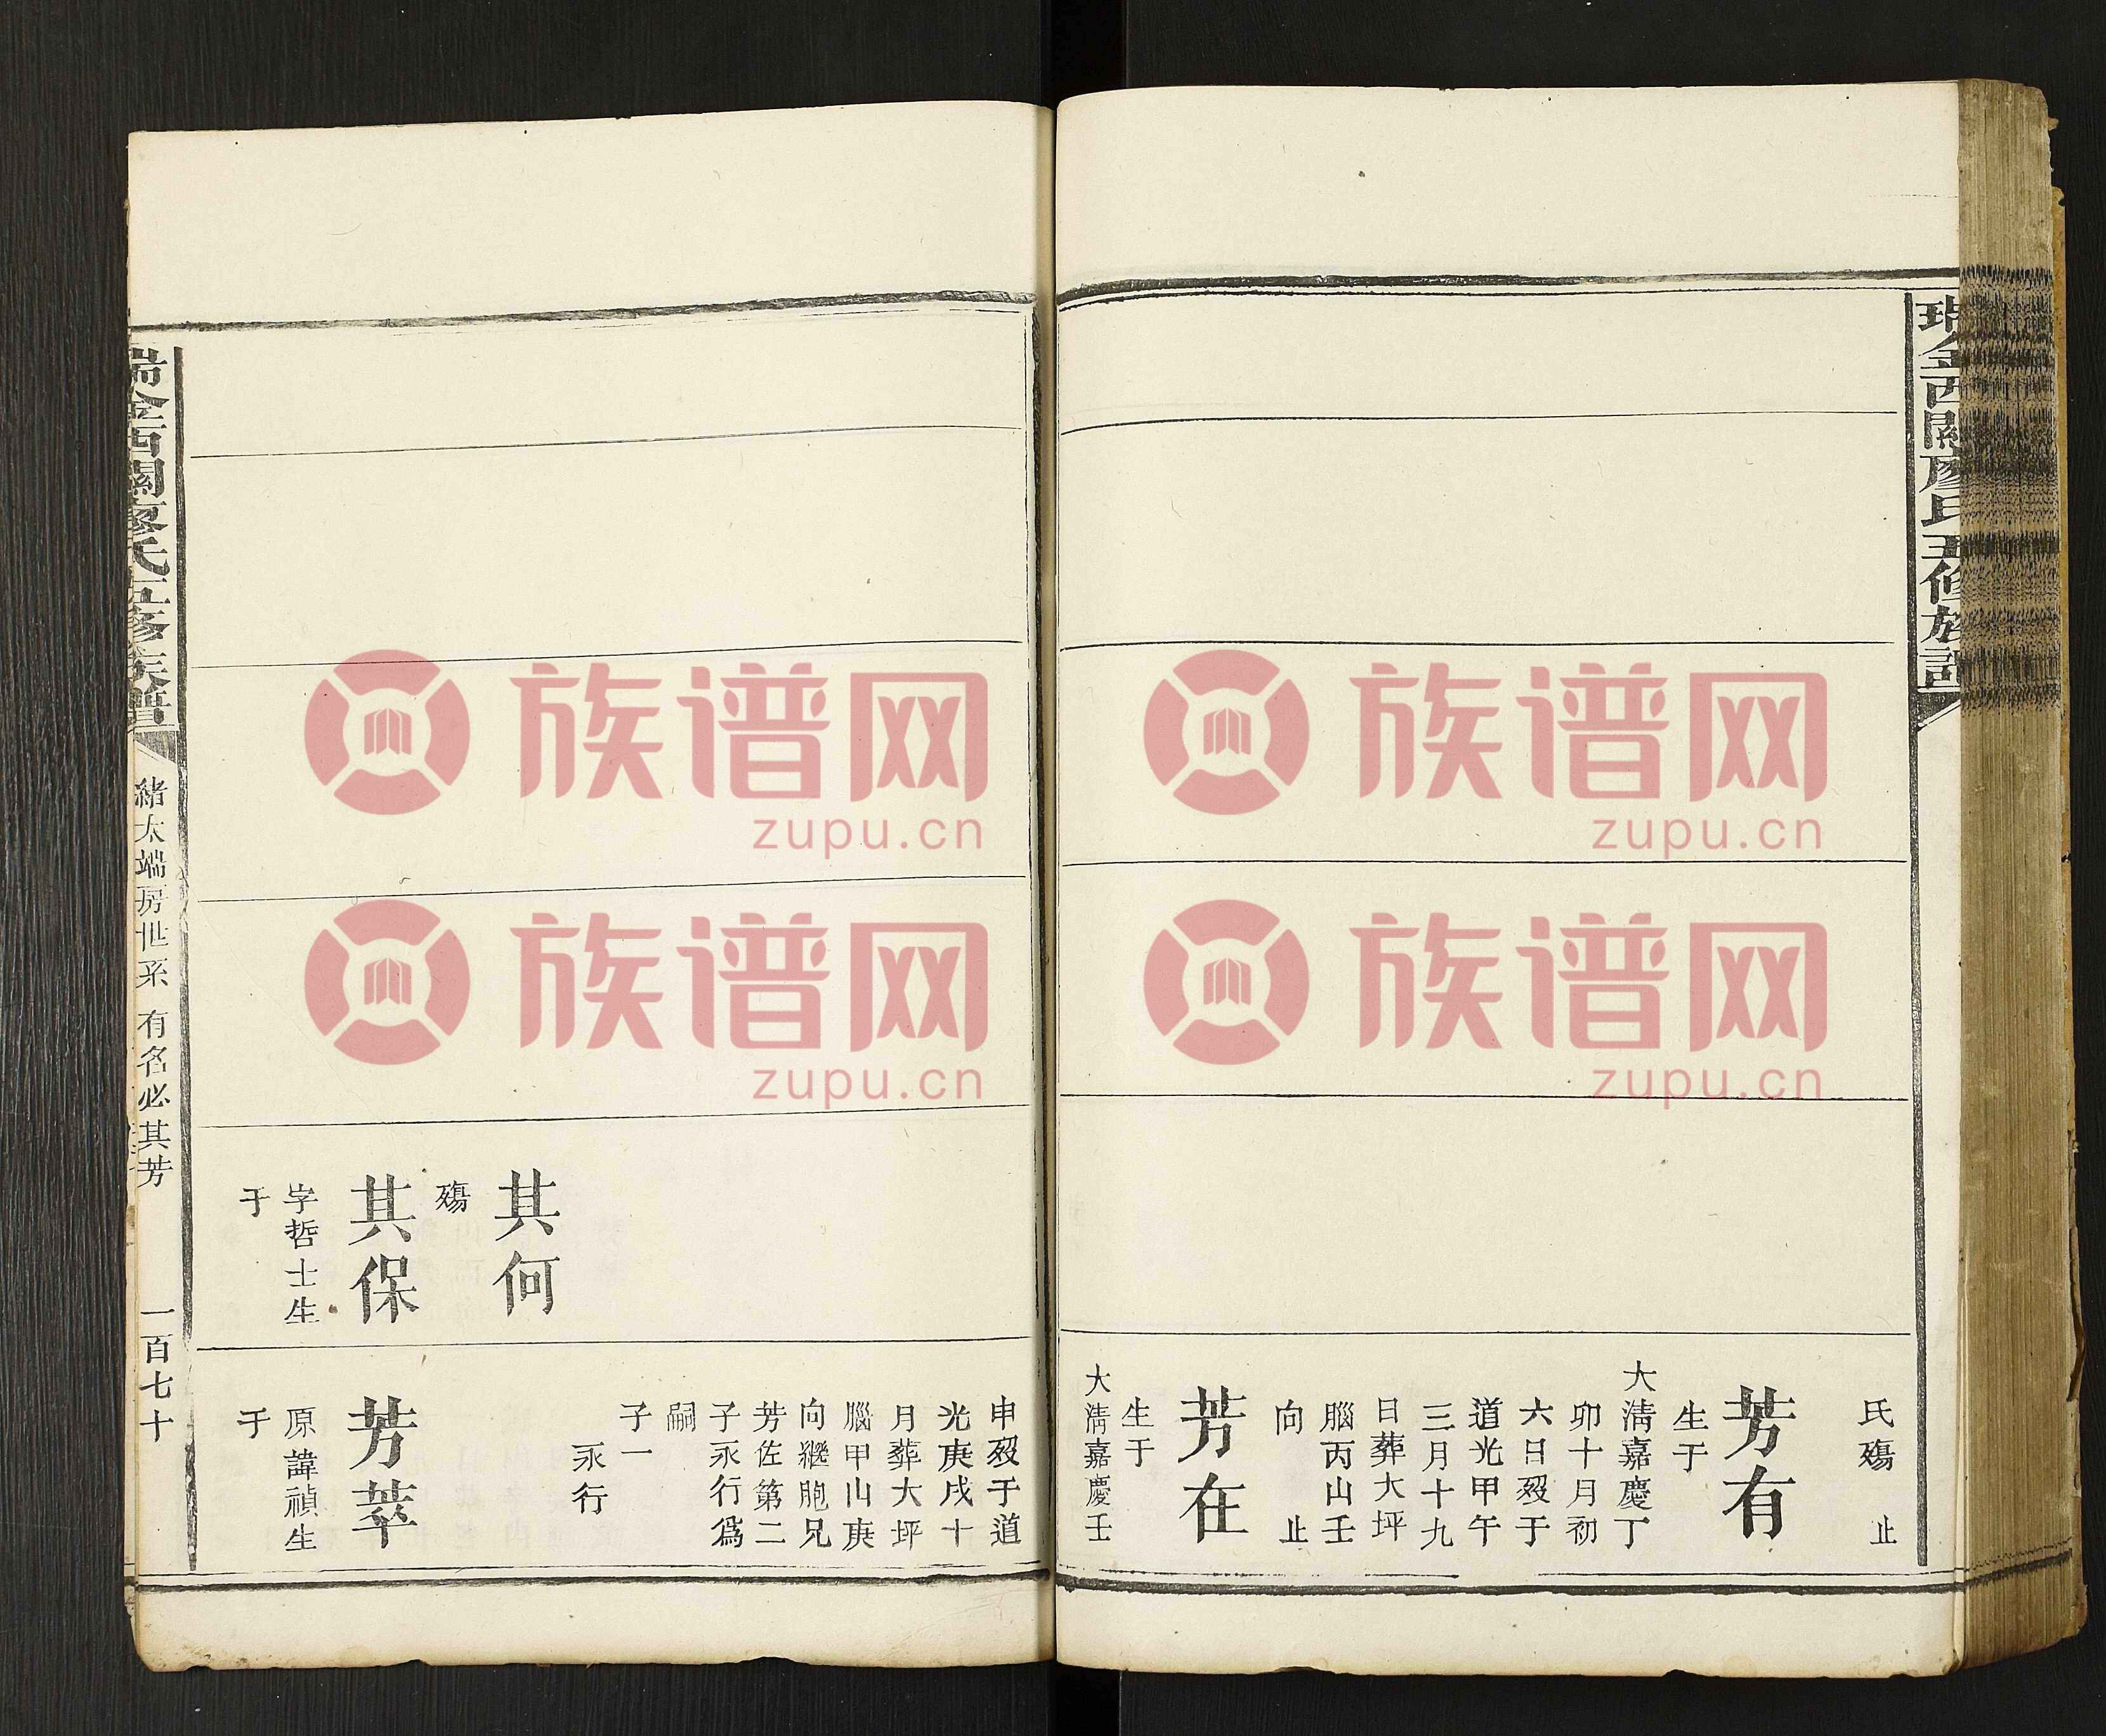 瑞金西關廖氏五修族譜
氏殤 止
芳有
生于
大清嘉慶丁
卯十月初
六日殁于
道光甲午
三月十九
日葬大坪
腦丙山壬
向 止
芳在
生于
大清嘉慶壬
申殁于道
光庚戌十
月葬大坪
腦甲山庚
向繼胞兄
芳佐第二
子永行爲
嗣
子一
永行
其何
殤
其保
字哲士生
于
芳莘
原諱禎生
于
瑞金西關廖氏五修族譜
緒太端房世系 有名必其芳
一百七十
族谱网
zupu.cn
族谱网
zupu.cn
族谱网
zupu.cn
族谱网
zupu.cn